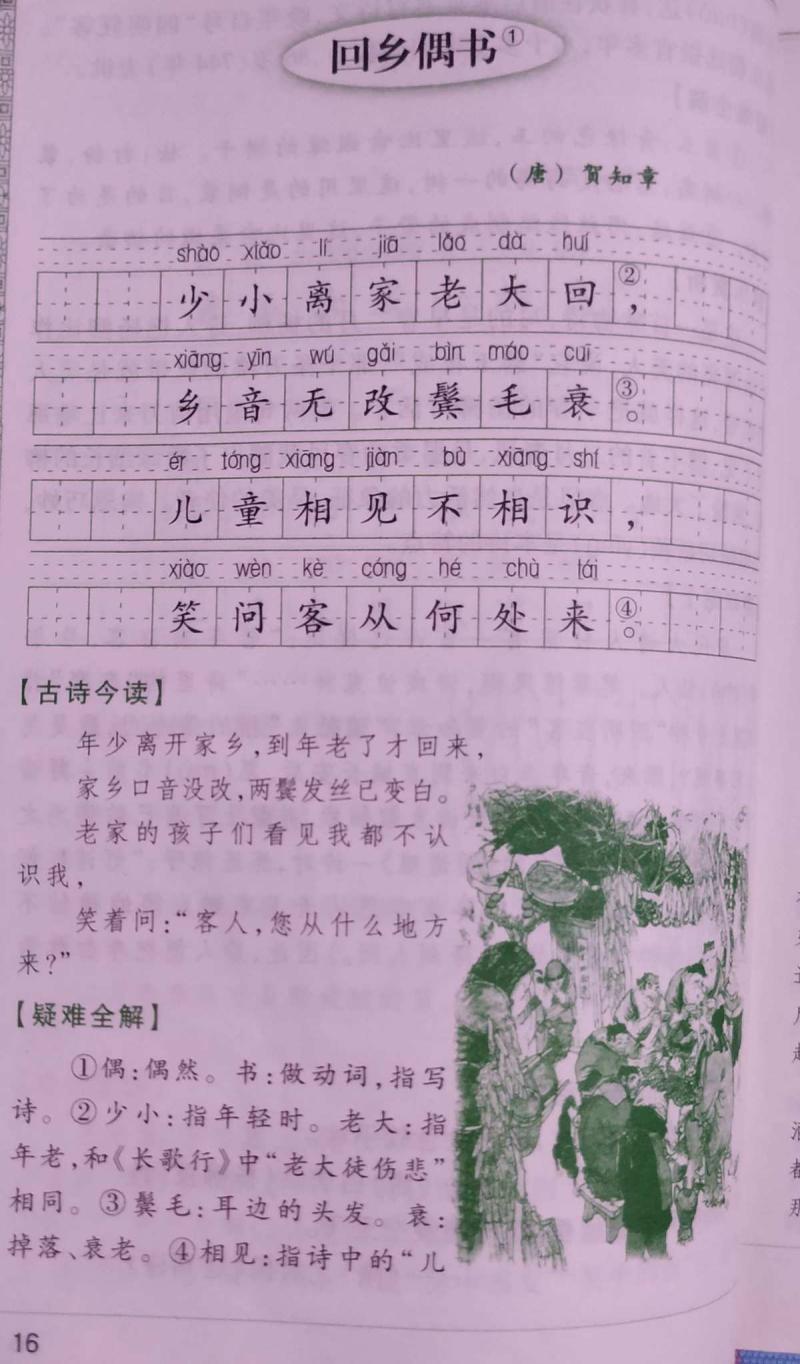 回乡偶书①
（唐）贺知章
shào xiǎo lí jiā lǎo dà huí
少小离家老大回②，
xiāng yīn wú gǎi bìn máo cuī
乡音无改鬓毛衰③。
ér tóng xiāng jiàn bù xiāng shí
儿童相见不相识，
xiào wèn kè cóng hé chù lái
笑问客从何处来④。
【古诗今读】
年少离开家乡，到年老了才回来，
家乡口音没改，两鬓发丝已变白。
老家的孩子们看见我都不认
识我，
笑着问：“客人，您从什么地方
来？”
【疑难全解】
①偶：偶然。书：做动词，指写
诗。②少小：指年轻时。老大：指
年老，和《长歌行》中“老大徒伤悲”
相同。③鬓毛：耳边的头发。衰：
掉落、衰老。④相见：指诗中的“儿
16